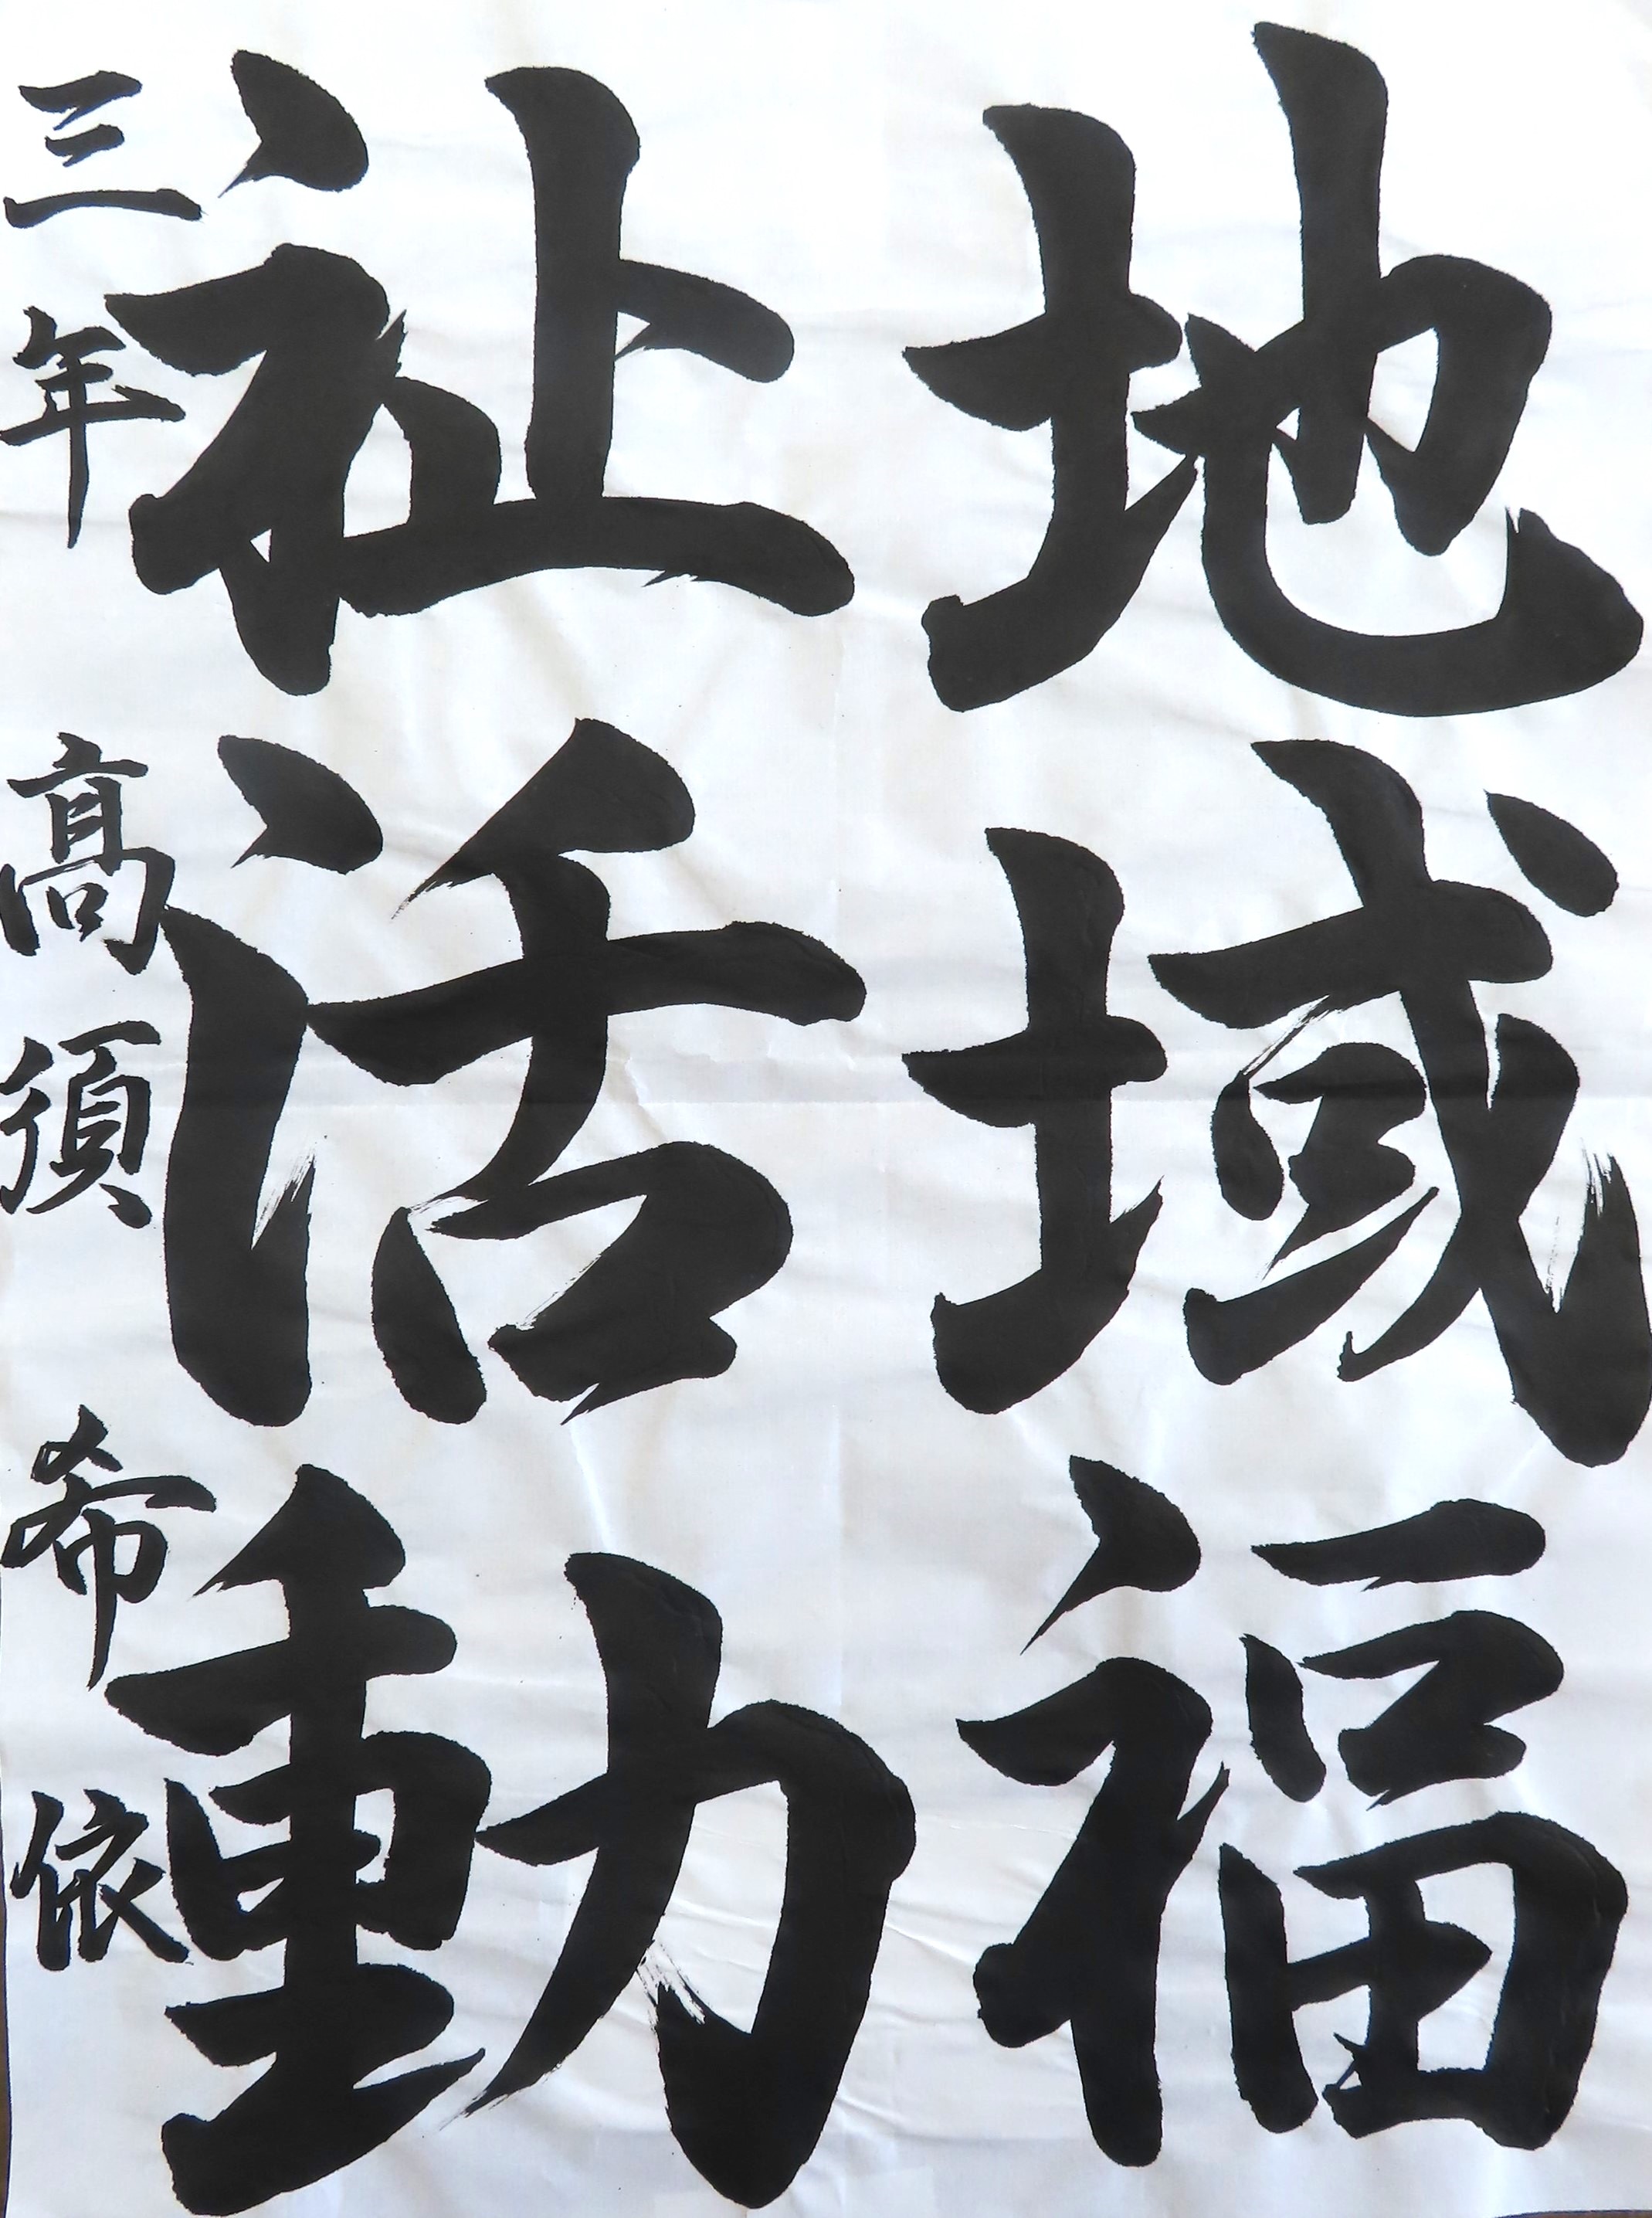 地域福
祉活動
三年 髙須希依